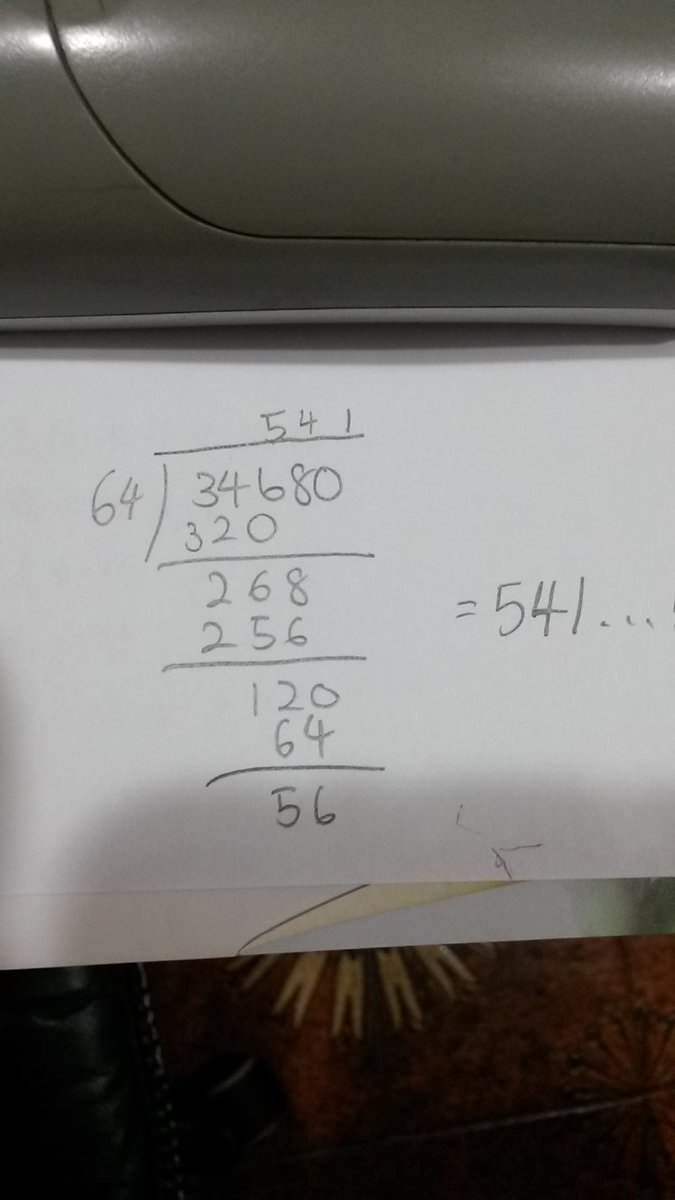 541
64 34680
320
268
256
= 541...
120
64
56